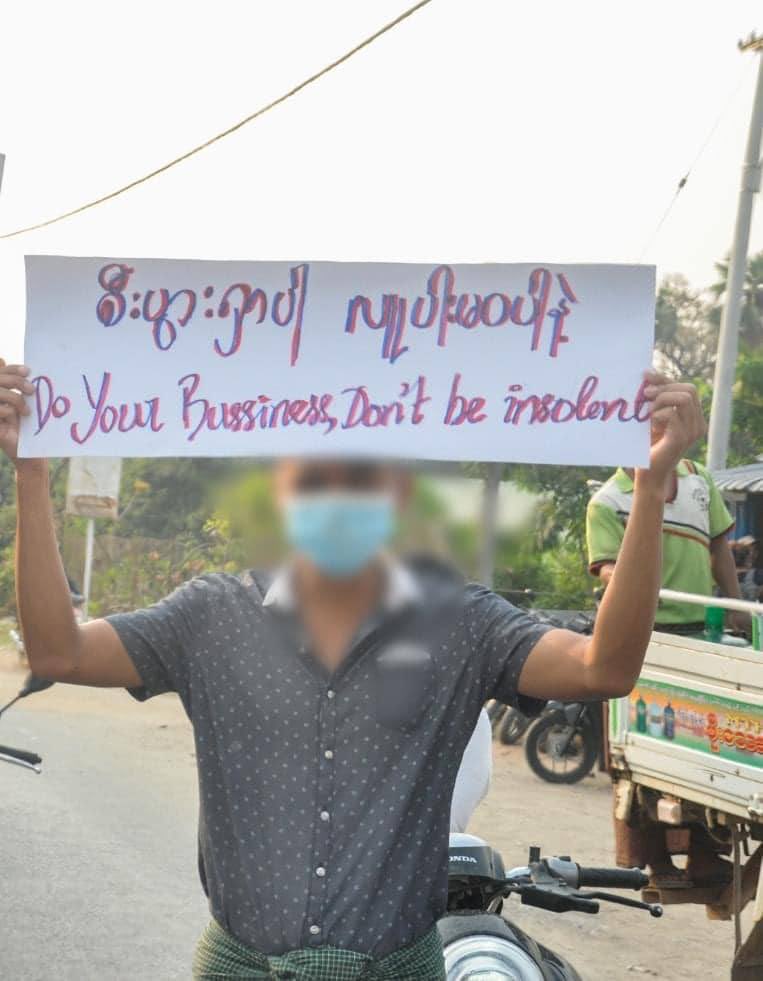 စီးပွားရှာပါ လူပါးမဝပါနဲ့
Do Your Bussiness, Don't be insolent
HONDA